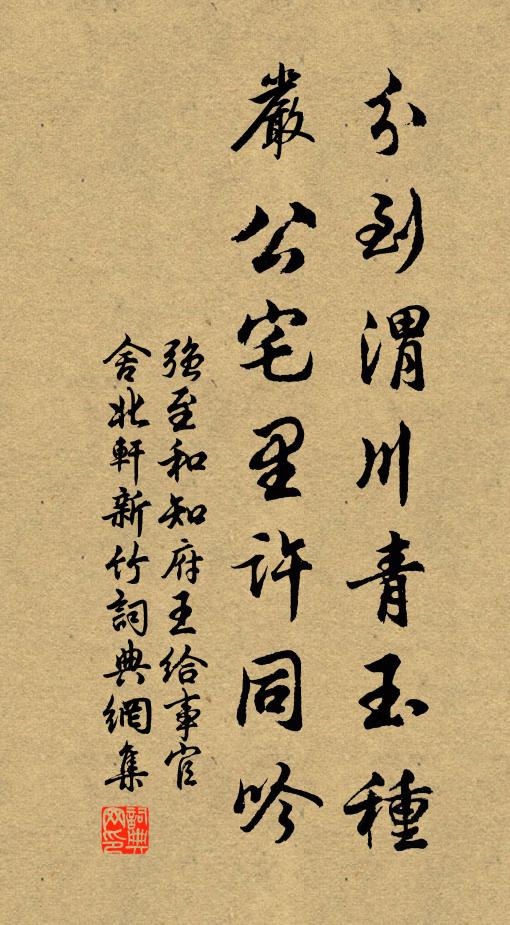 分到渭川青玉種
嚴公宅里許同吟
強至和知府王給事官
舍北軒新竹詞典網集
詞典網印